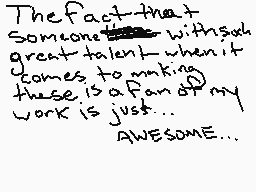 The fact that
someone with such
great talent when it
comes to making
these is a fan of my
work is just...
AWESOME...